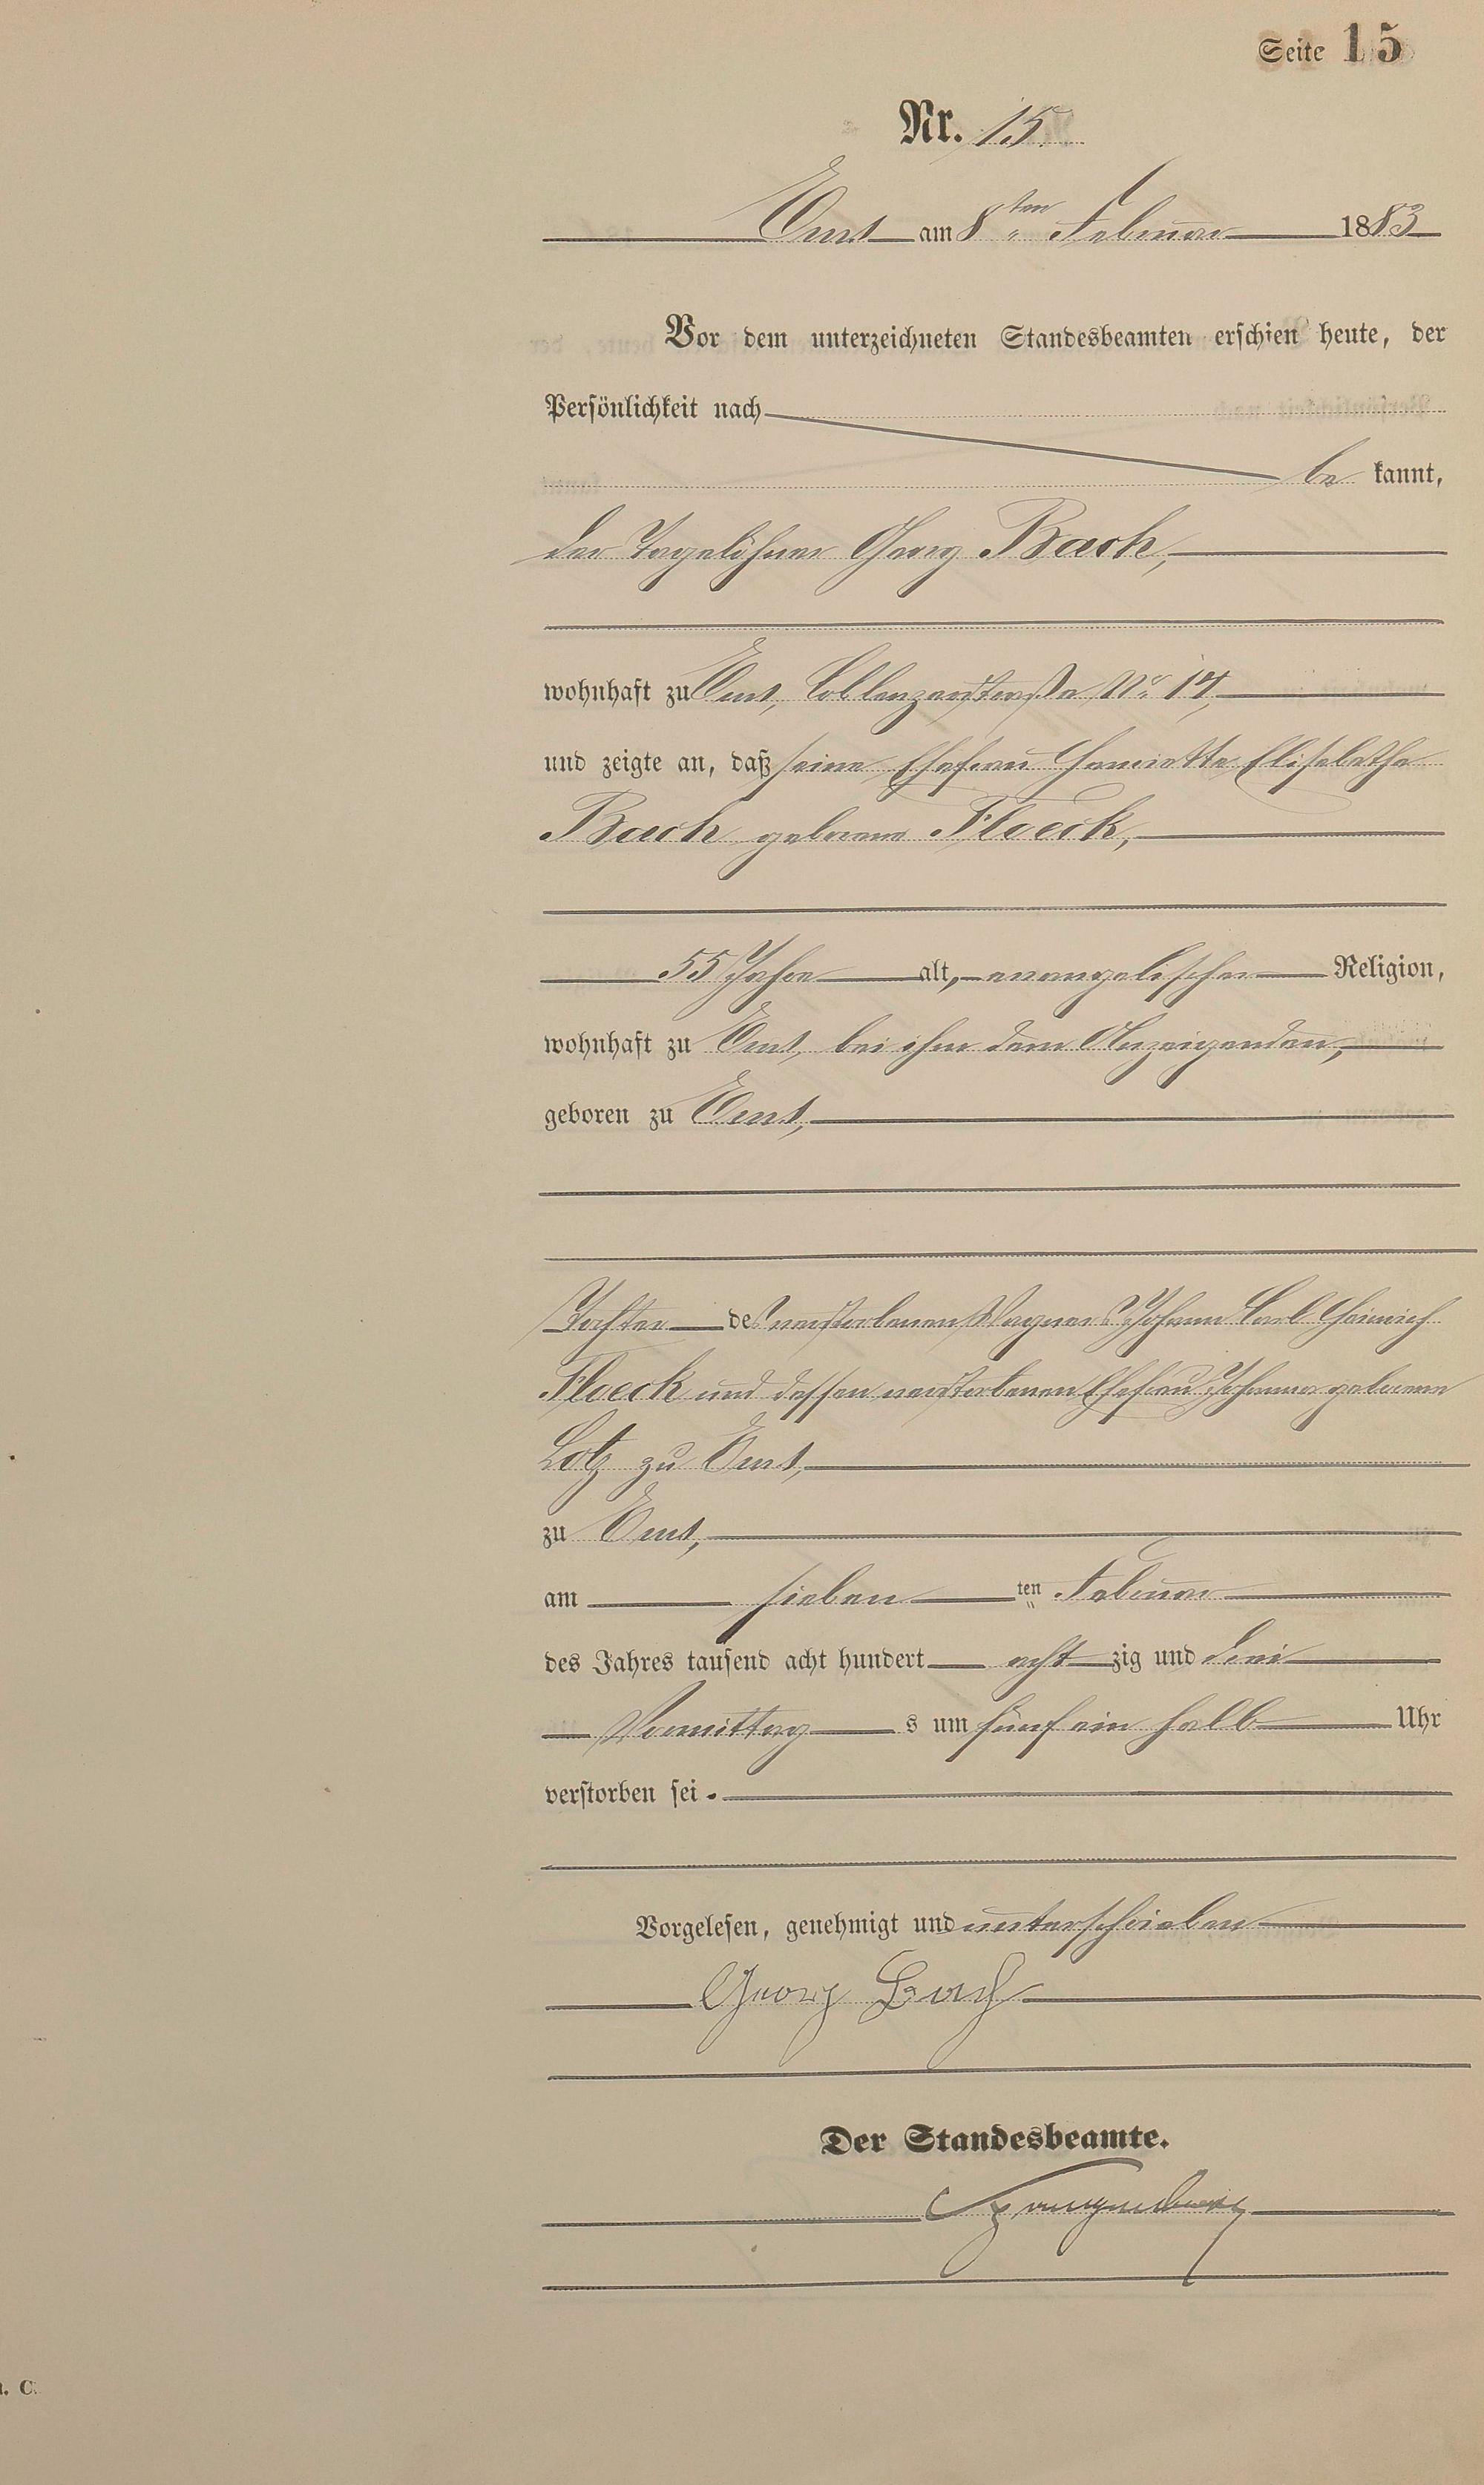 Seite 15
Nr. 15.
Ems am 8ten Februar 1883
Vor dem unterzeichneten Standesbeamten erschien heute, der
Persönlichkeit nach
be kannt,
der Tagelöhner Georg Bach,
wohnhaft zu Ems, Coblenzerstraße No. 17,
und zeigte an, daß seine Ehefrau Henriette Elisabetha
Bach geborene Floeck,
55 Jahre alt, evangelischer Religion,
wohnhaft zu Ems, bei ihm dem Anzeigenden,
geboren zu Ems,
Tochter des verstorbenen Wagners Johann Carl Heinrich
Floeck und dessen verstorbenen Ehefrau Johanna geborene
Lotz zu Ems,
zu Ems,
am sieben ten Februar
des Jahres tausend acht hundert acht zig und drei
Vormittag s um fünf ein halb Uhr
verstorben sei.
Vorgelesen, genehmigt und unterschrieben
Georg Bach
Der Standesbeamte.